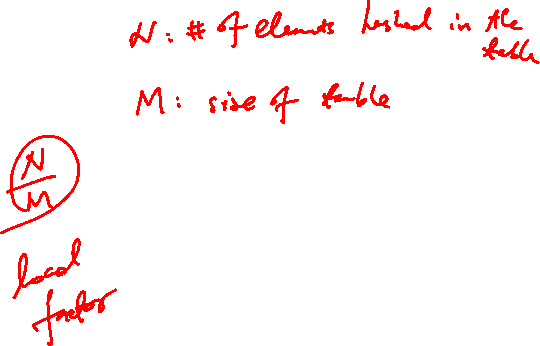 N: # of elements hashed in the
table
M: size of table
N
M
load
factor